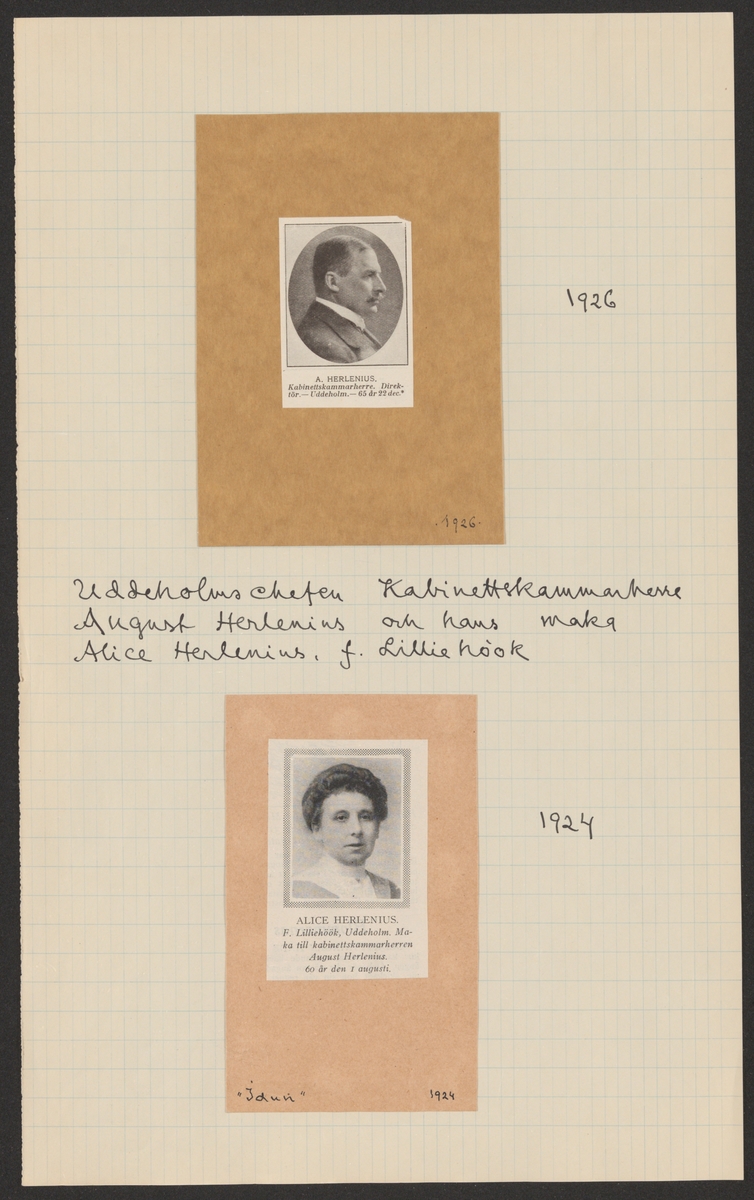 1926
A. HERLENIUS.
Kabinettskammarherre. Direk-
tör.— Uddeholm.— 65 år 22 dec.*
·1926·
Uddeholmschefen Kabinettskammarherre
August Herlenius och hans maka
Alice Herlenius, f. Lilliehöök
1924
ALICE HERLENIUS.
F. Lilliehöök, Uddeholm. Ma-
ka till kabinettskammarherren
August Herlenius.
60 år den 1 augusti.
"Idun" 1924